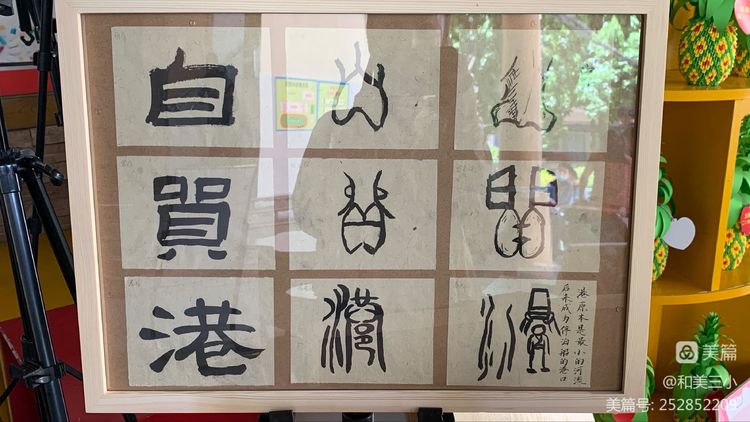 自
貿
港
港
港原本是最小的河流
后来成为停泊船的港口
美篇
@和美三小
美篇号: 252852209